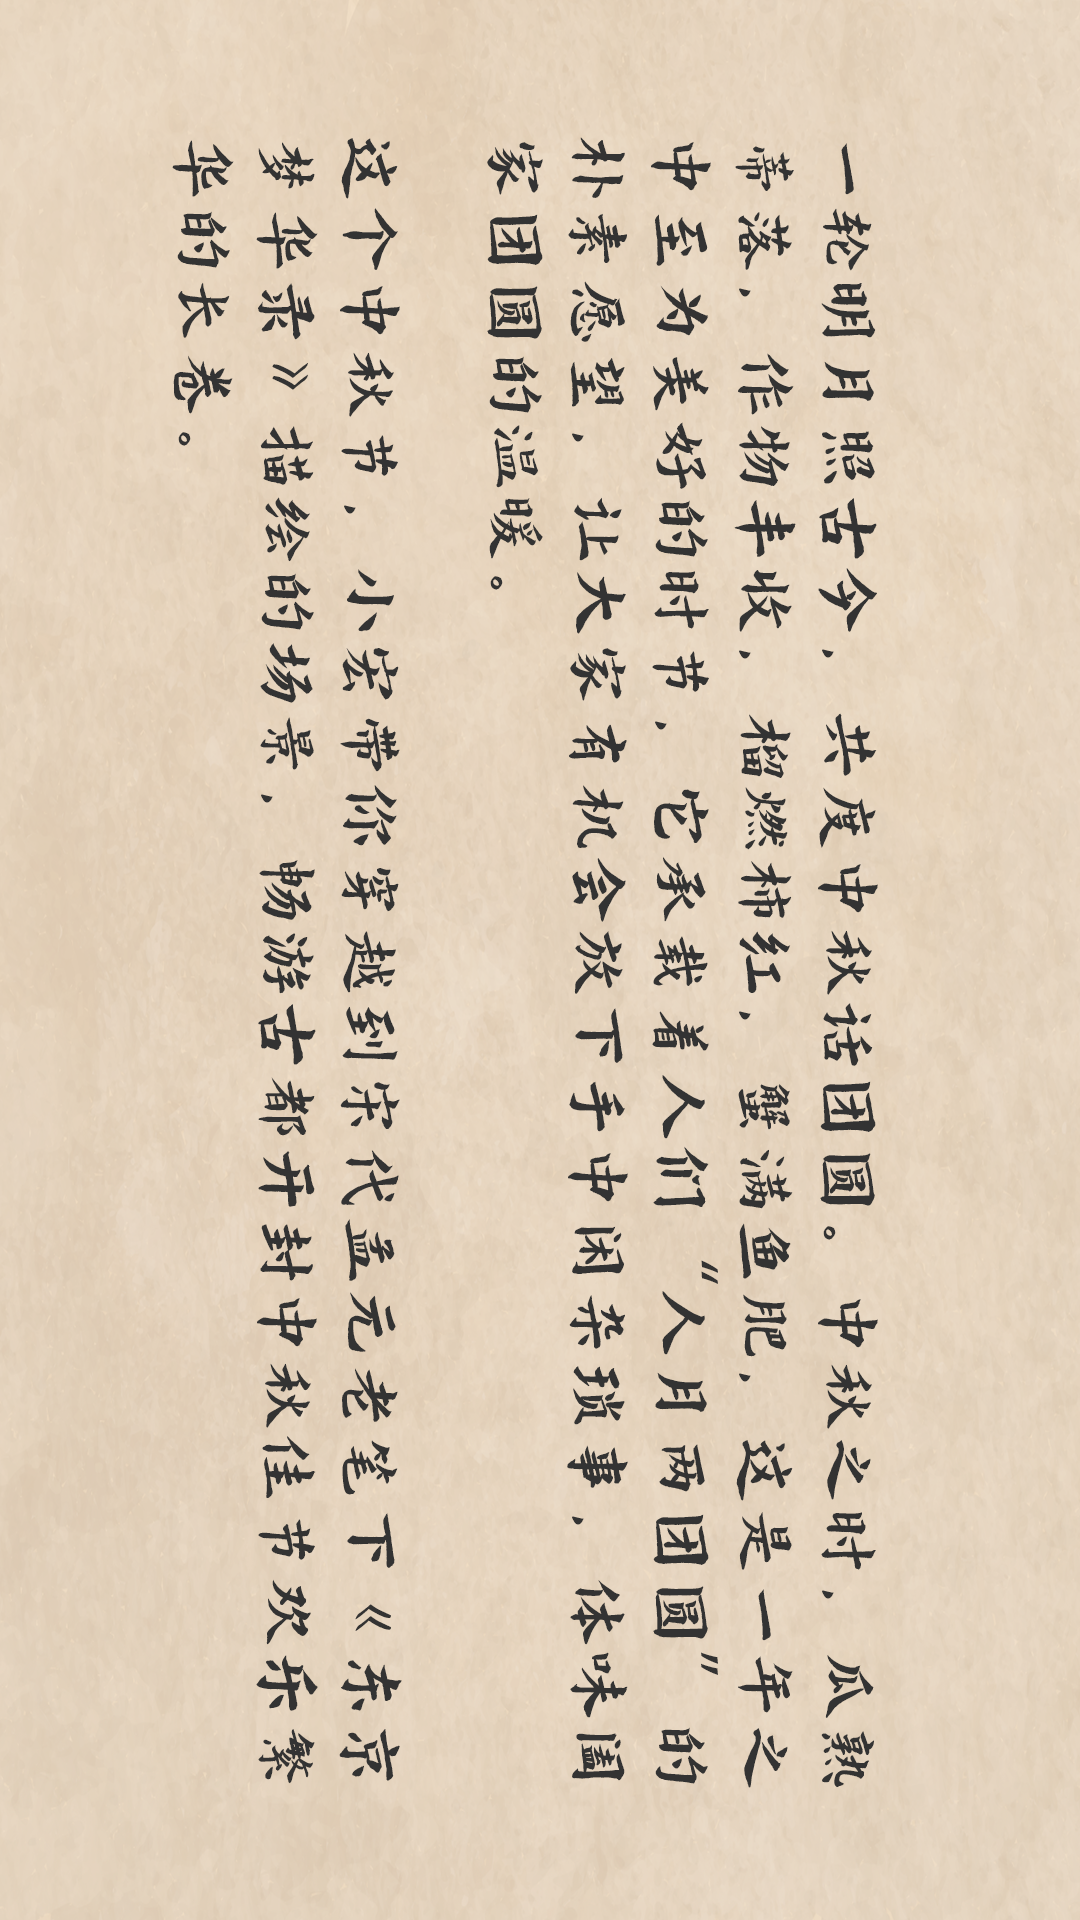 一轮明月照古今，共度中秋话团圆。中秋之时，瓜熟
蒂落，作物丰收，榴燃柿红，蟹满鱼肥，这是一年之
中至为美好的时节，它承载着人们“人月两团圆”的
朴素愿望，让大家有机会放下手中闲杂琐事，体味阖
家团圆的温暖。
这个中秋节，小宏带你穿越到宋代孟元老笔下《东京
梦华录》描绘的场景，畅游古都开封中秋佳节欢乐繁
华的长卷。